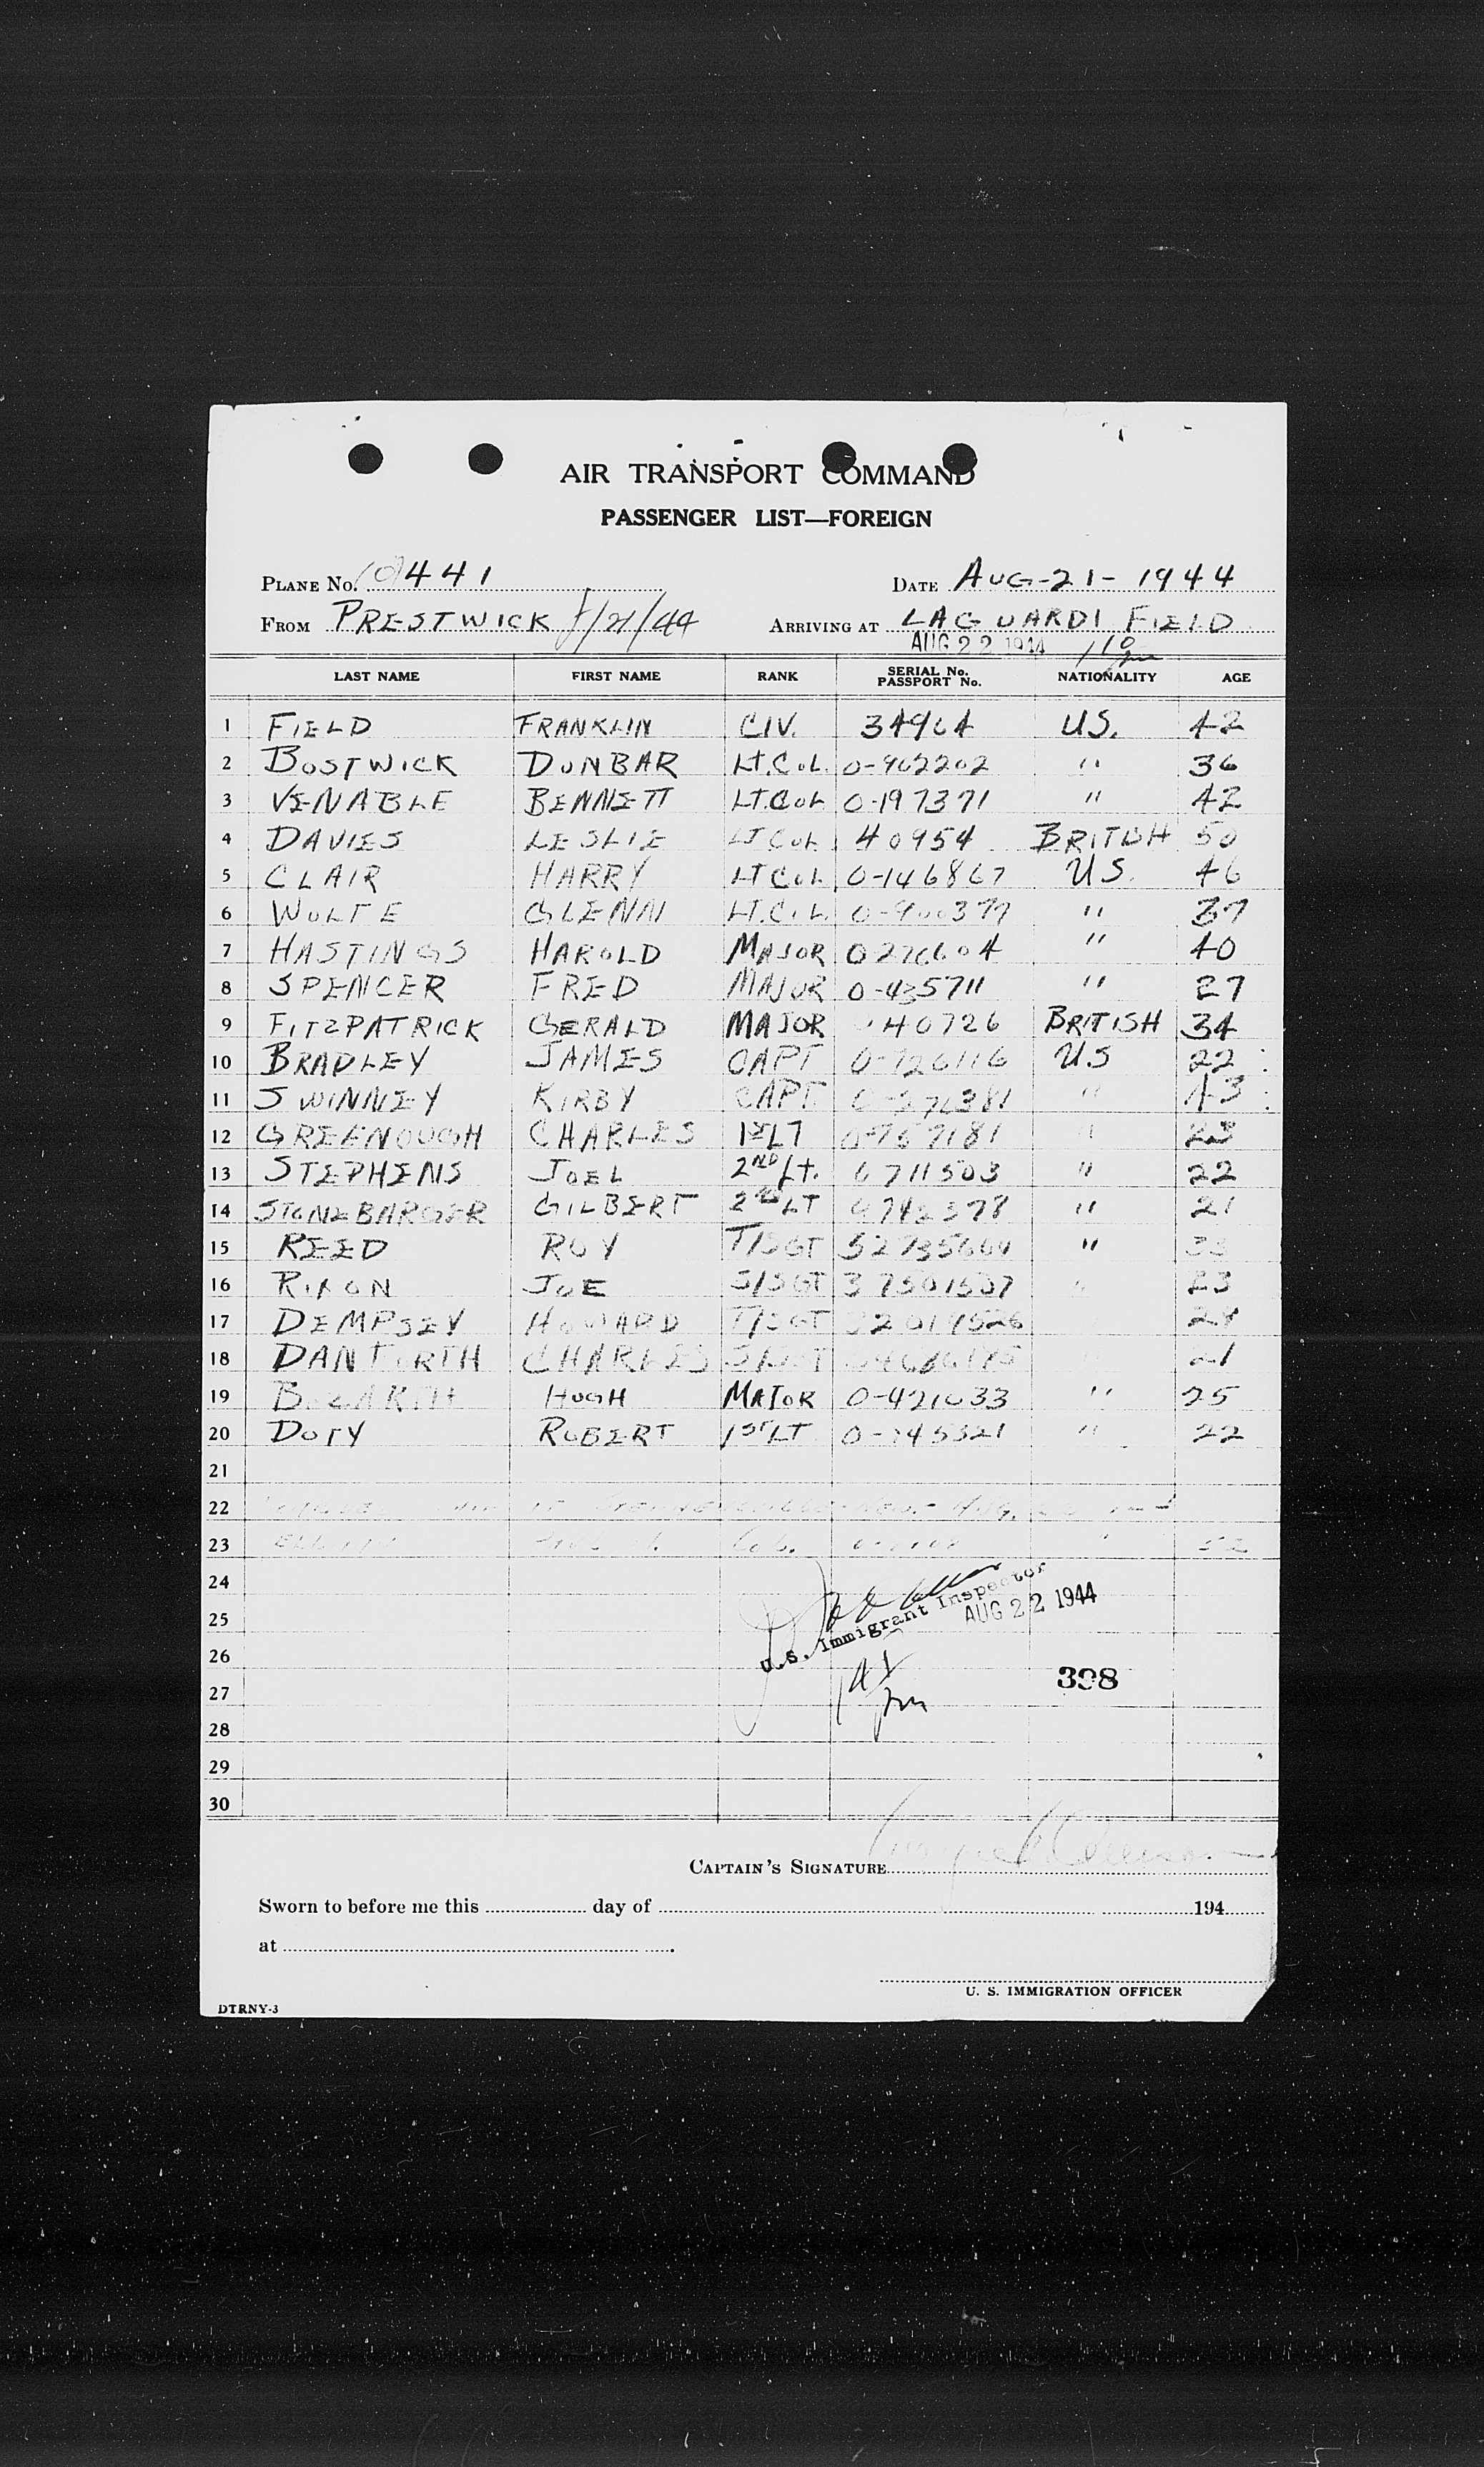 AIR TRANSPORT COMMAND
PASSENGER LIST—FOREIGN
PLANE No. 441 DATE AUG-21-1944
FROM PRESTWICK 8/21/44 ARRIVING AT LAGUARDI FIELD
AUG 22 1944
LAST NAME FIRST NAME RANK SERIAL No. PASSPORT No. NATIONALITY AGE
1 FIELD FRANKLIN CIV. 34964 U.S. 42
2 BOSTWICK DUNBAR LT.COL. 0-902202 " 36
3 VENABLE BENNETT LT.COL 0-197371 " 42
4 DAVIES LESLIE LT COL 40954 BRITISH 50
5 CLAIR HARRY LT COL 0-146867 U.S. 46
6 GLENN LT.COL. " 37
7 HASTINGS HAROLD MAJOR 0276604 " 40
8 SPENCER FRED MAJOR 0-435711 " 27
9 FITZPATRICK GERALD MAJOR 40726 BRITISH 34
10 BRADLEY JAMES CAPT 0-726116 U.S 22
11 SWINNEY KIRBY CAPT. " 43
12 GREENOUGH CHARLES 1ST LT "
13 STEPHENS JOEL 2ND Lt. 6711503 " 22
14 STONEBARGER GILBERT 2ND LT " 21
15 REED ROY T/SGT "
16 JOE S/SGT 37501537 23
17 DEMPSEY HOWARD T/SGT
18 DANFORTH CHARLES
19 HUGH MAJOR 0-421033 " 25
20 DOTY ROBERT 1ST LT " 22
21
22
23
24
25
26
27
28
29
30
U.S. Immigrant Inspector
AUG 22 1944
398
CAPTAIN'S SIGNATURE
Sworn to before me this day of 194
at
U. S. IMMIGRATION OFFICER
DTRNY-3